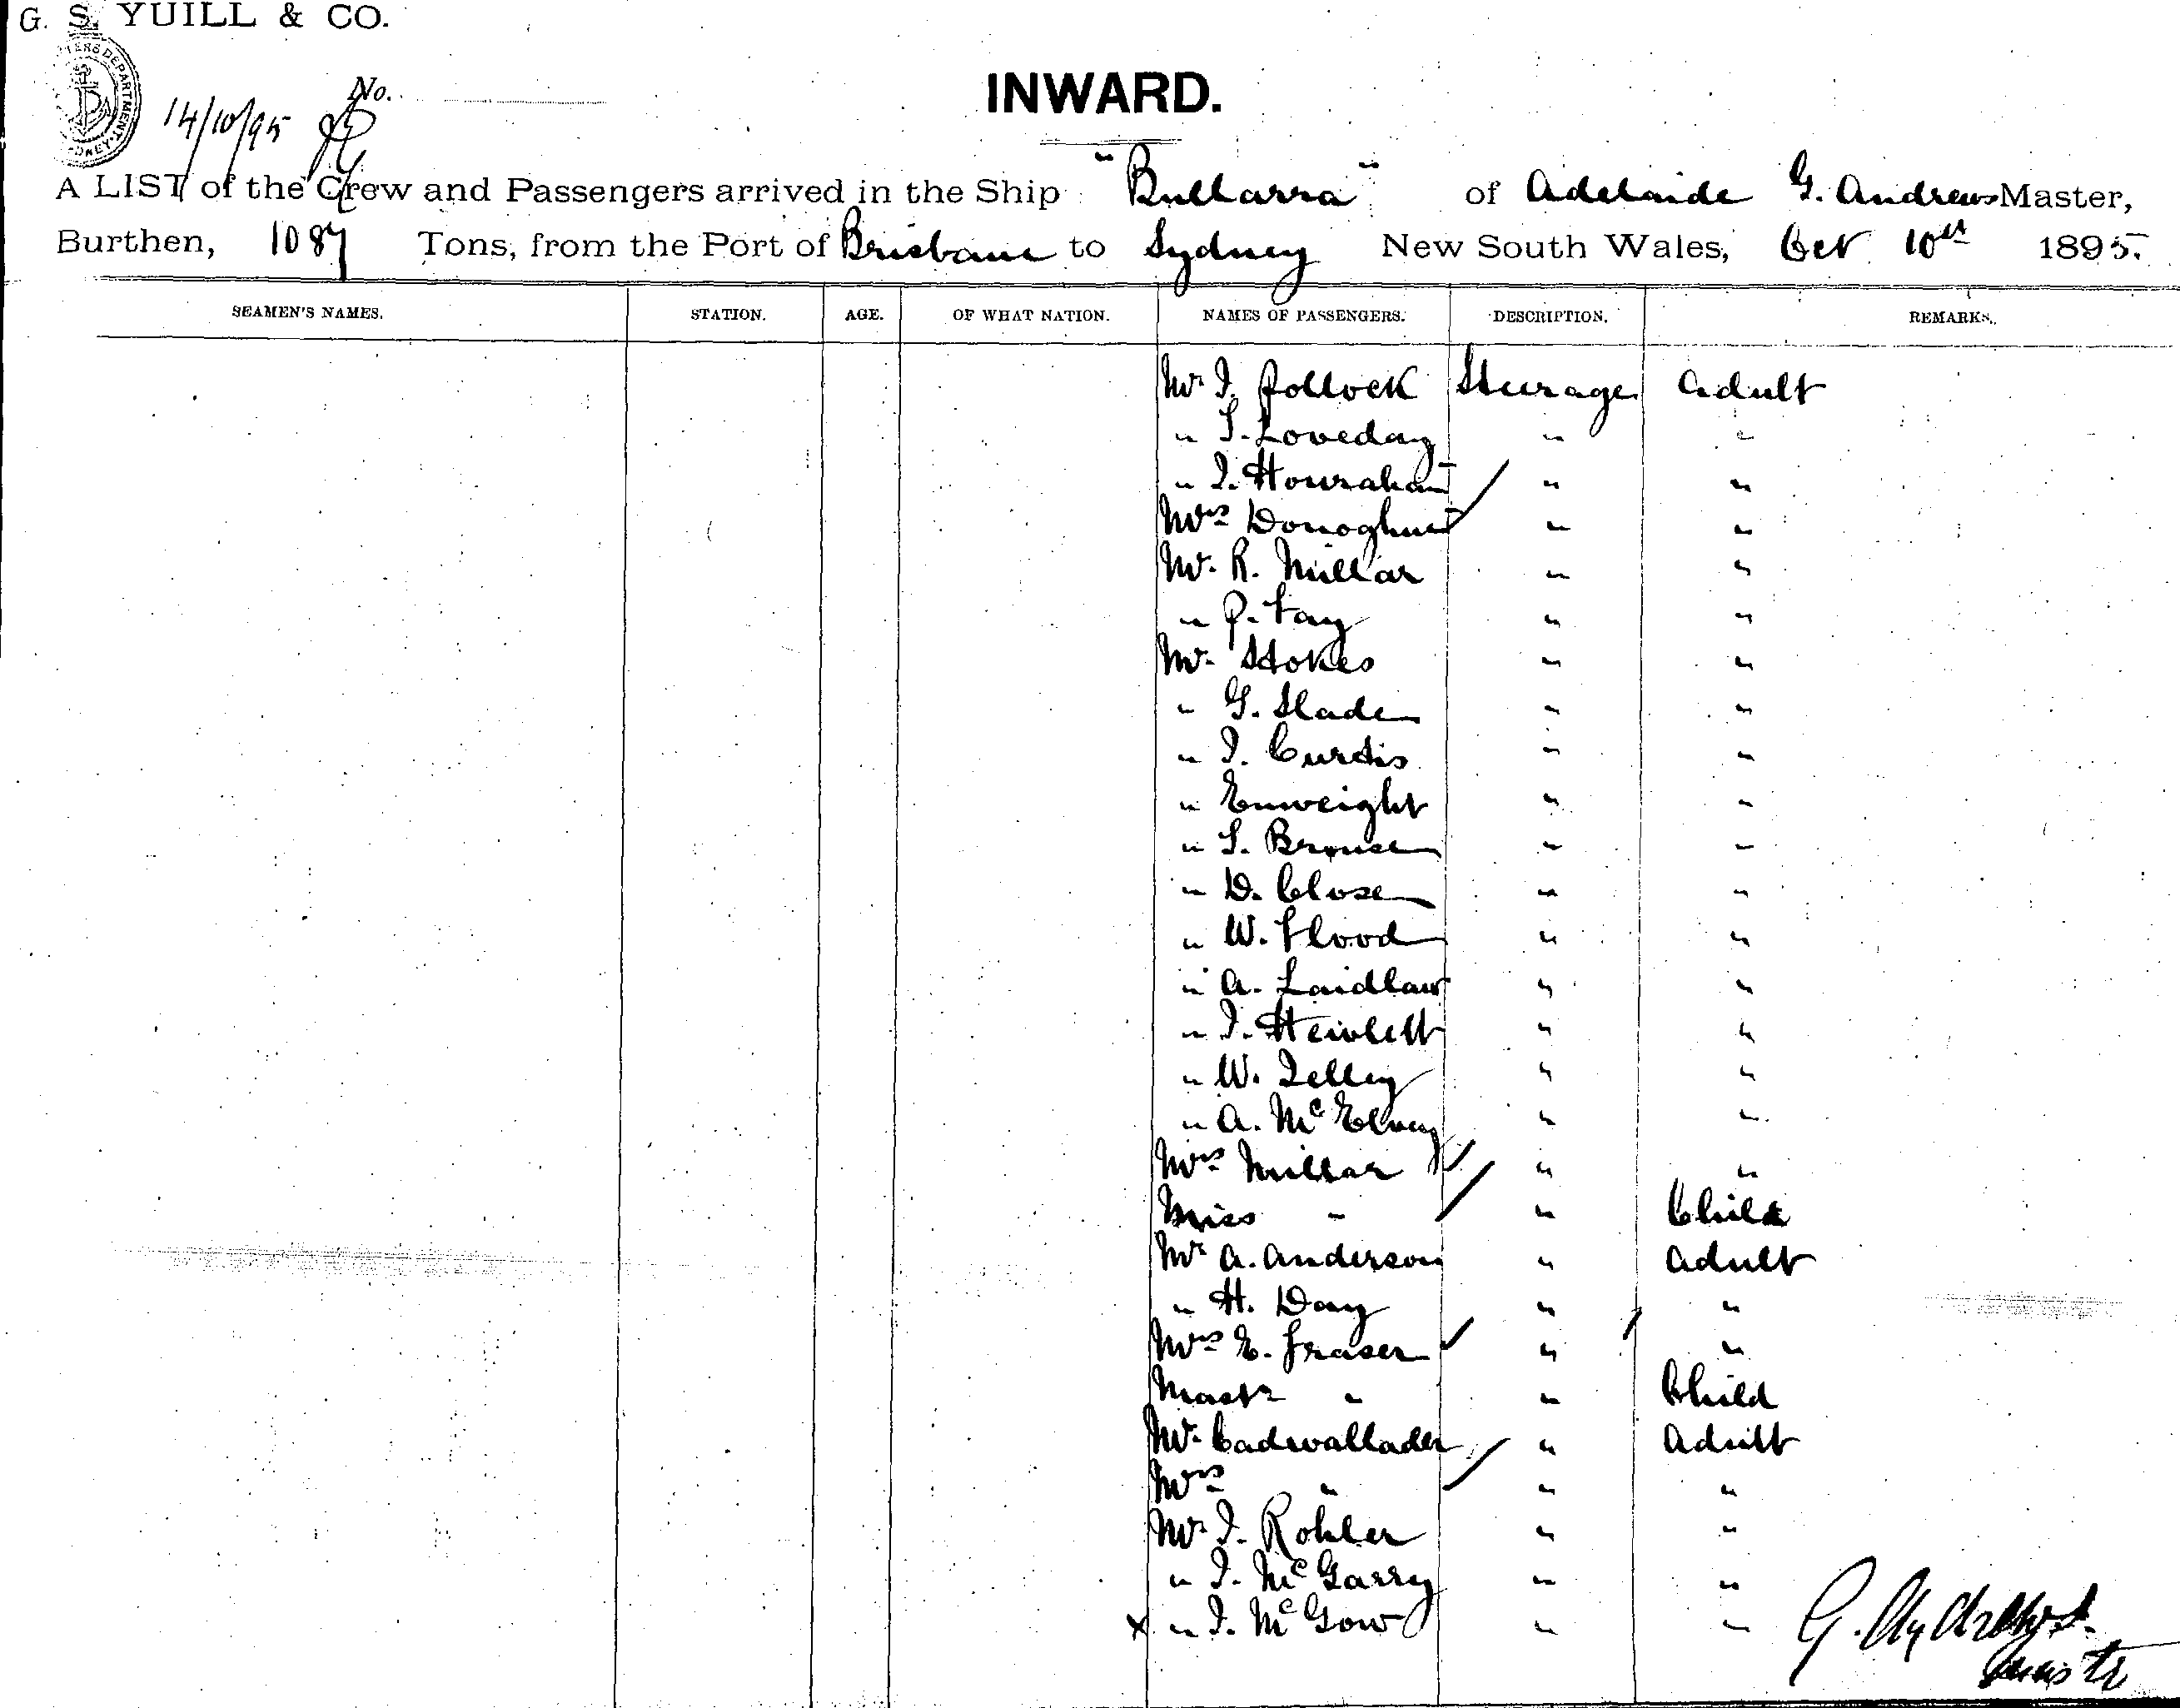 G. S. YUILL & CO.
No.
14/10/95
INWARD.
A LIST of the Crew and Passengers arrived in the Ship "Bullarra" of Adelaide G. Andrews Master,
Burthen, 1087 Tons, from the Port of Brisbane to Sydney New South Wales, Oct 10th 1895.
SEAMEN'S NAMES. STATION. AGE. OF WHAT NATION. NAMES OF PASSENGERS. DESCRIPTION. REMARKS.
Mr J. Pollock Steerage Adult
" S. Loveday " "
" J. Hourahan " "
Mrs Donoghue " "
Mr. R. Millar " "
" P. Fay " "
Mr. Stokes " "
" G. Slade " "
" J. Curtis " "
" Enweight " "
" S. Brouse " "
" D. Close " "
" W. Flood " "
" A. Laidlaw " "
" J. Hewlett " "
" W. Zelley " "
" A. McElvey " "
Mrs Millar " "
Miss " " Child
Mr A. Anderson " Adult
" H. Day " "
Mrs E. Fraser " "
Mastr " " Child
Mr. Cadwallader " Adult
Mrs " " "
Mr J. Rohler " "
" J. McGarry " "
x " J. McGow " "
G. Andrews
Master